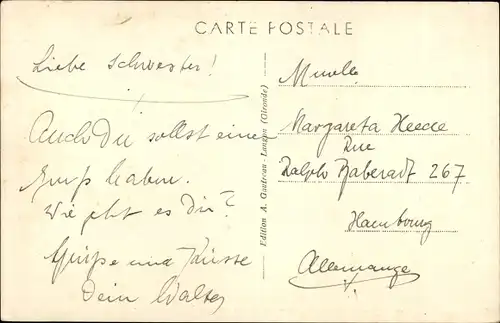 CARTE POSTALE
Liebe Schwester!
Auch Du sollst eine
Gruß haben.
Wie geht es Dir?
Grüße und Küsse
Dein Walter
Edition A. Gautreau - Langon (Gironde)
Margareta Heede
Rue
Ralph 267
Hambourg
Allemange